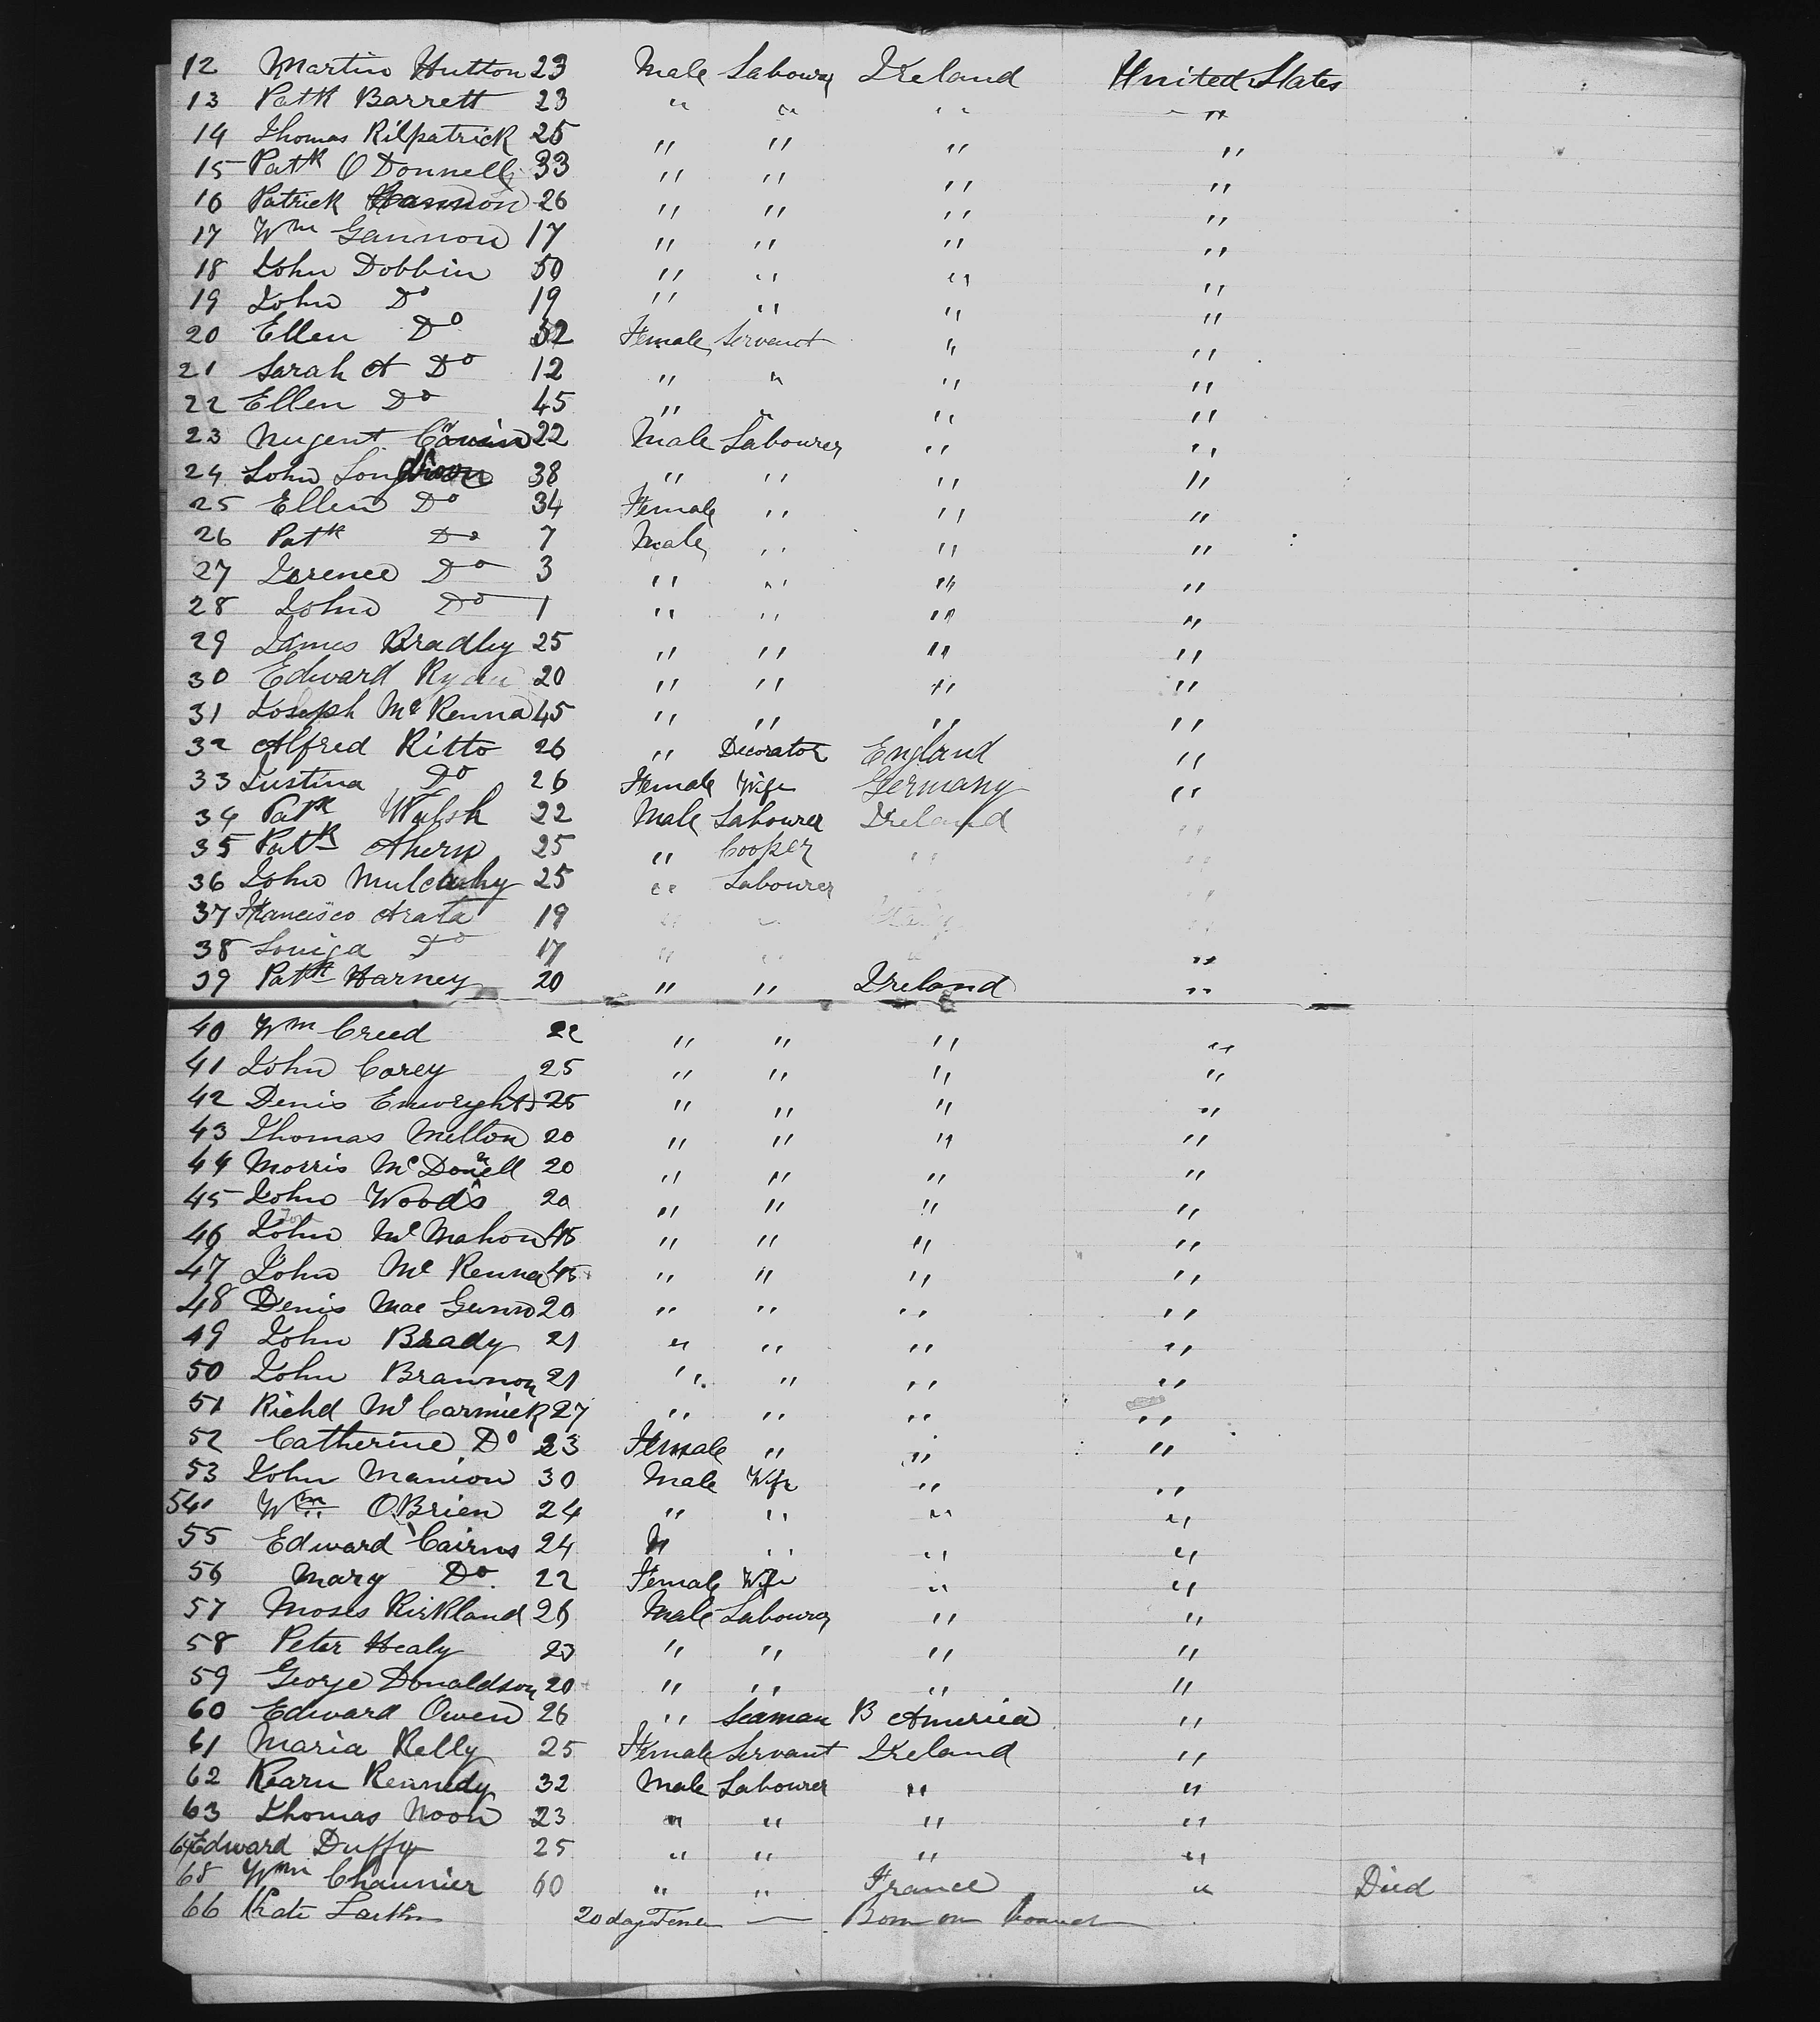 12 Martin Hutton 23 Male Labourer Ireland United States
13 Patk Barrett 23 " " " "
14 Thomas Kilpatrick 25 " " " "
15 Patk O Donnell 33 " " " "
16 Patrick Hannon 26 " " " "
17 Wm Gannon 17 " " " "
18 John Dobbin 50 " " " "
19 John Do 19 " " " "
20 Ellen Do 32 Female Servant " "
21 Sarah A Do 12 " " " "
22 Ellen Do 45 " " " "
23 Nugent 22 Male Labourer " "
24 John 38 " " " "
25 Ellen Do 34 Female " " "
26 Patk Do 7 Male " " "
27 Lorence Do 3 " " " "
28 John Do 1 " " " "
29 James Bradley 25 " " " "
30 Edward Ryan 20 " " " "
31 Joseph Mc Kenna 45 " " " "
32 Alfred Kitto 26 " Decorator England "
33 Justina Do 26 Female Wife Germany "
34 Patk Walsh 22 Male Labourer Ireland "
35 Patk Ahern 25 " Cooper " "
36 John Mulcahy 25 " Labourer "
37 Francisco Arata 19 " " Italy "
38 Louiga Do 17 " " " "
39 Patk Harney 20 " " Ireland "
40 Wm Creed 22 " " " "
41 John Carey 25 " " " "
42 Denis Enwright 25 " " " "
43 Thomas Mellon 20 " " " "
44 Morris Mc Donnell 20 " " " "
45 John Woods 20 " " " "
46 John Mc Mahon 45 " " " "
47 John Mc Kenna 45 " " " "
48 Denis Mac Gunn 20 " " " "
49 John Brady 21 " " " "
50 John Brannon 21 " " " "
51 Richd Mc Carmick 27 " " " "
52 Catherine Do 23 Female " " "
53 John Manion 30 Male Wife " "
54 Wm O'Brien 24 " " " "
55 Edward Cairns 24 " " " "
56 Mary Do 22 Female Wife " "
57 Moses Kirkland 26 Male Labourer " "
58 Peter Healy 23 " " " "
59 George Donaldson 20 " " " "
60 Edward Owen 26 " Seaman B America "
61 Maria Kelly 25 Female Servant Ireland "
62 Kearn Kennedy 32 Male Labourer " "
63 Thomas Noon 23 " " " "
64 Edward Duffy 25 " " " "
65 Wm Chaunier 60 " " France " Died
66 Kate Larkin 20 days — Born on board